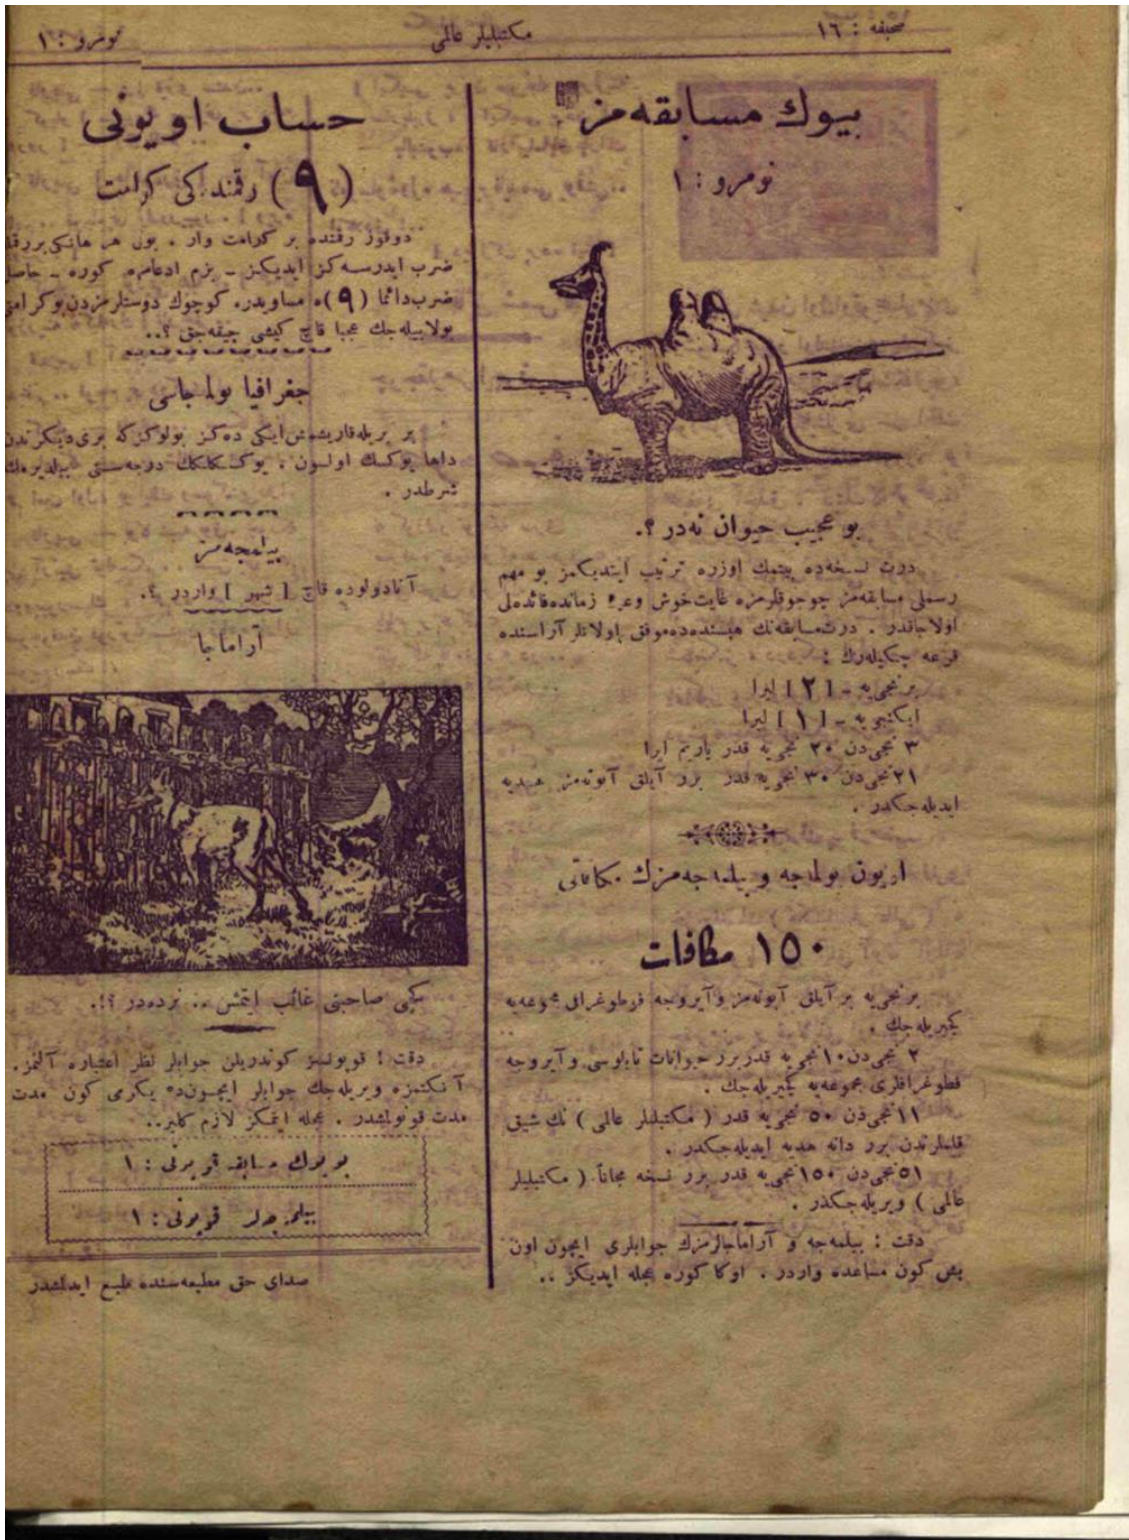 صحیفه : ١٦
مكتبلیلر عالمی
نومرو : ١
بیوك مسابقه‌مز
نومرو : ١
بو عجیب حیوان نه‌در ؟.
درت نسخه‌ده بیتمك اوزره ترتیب ایتدیكمز بو مهم
رسملی مسابقه‌مز چوجوقلرمزه غایت خوش وعین زمانده فائده‌لی
اولاجاقدر . درت مسابقه‌نك هپسنده‌ده موفق اولانلر آراسنده
قرعه چكیله‌رك :
برنجی‌یه ـ [٢] لیرا
ایكنجی‌یه ـ [١] لیرا
٣ نجی‌دن ٢٠ نجی‌یه قدر یاریم لیرا
٢١ نجی‌دن ٣٠ نجی‌یه قدر برر آیلق آبونه‌مز هدیه
ایدیله‌جكدر .
اویون بولمه‌جه و بیلمه‌جه‌مزك مكافاتی
١٥٠ مكافات
برنجی‌یه بر آیلق آبونه‌مز وآیروجه فوطوغرافی مجموعه‌یه
كچیریله‌جك .
٢ نجی‌دن ١٠ نجی‌یه قدر برر حیوانات تابلوسی وآیروجه
فطوغرافلری مجموعه‌یه كچیریله‌جك .
١١ نجی‌دن ٥٠ نجی‌یه قدر ( مكتبلیلر عالمی ) نك شیق
قلملرندن برر دانه هدیه ایدیله‌جكدر .
٥١ نجی‌دن ١٥٠ نجی‌یه قدر برر نسخه مجاناً ( مكتبلیلر
عالمی ) ویریله‌جكدر .
دقت : بیلمه‌جه و آراماجالرمزك جوابلری ایچون اون
بش كون مساعده واردر . اوكا كوره عجله ایدیكز ..
حساب اویونی
(٩) رقمنده‌كی كرامت
دوقوز رقمنده بر كرامت وار . بونی هر هانكی بر رقمله
ضرب ایدرسه‌كز ایدیكز ـ بزم ادعامزه كوره ـ حاصل
ضرب دائما (٩) ه مساویدر. كوچوك دوستلرمزدن بو كرامتی
بولابیله‌جك عجبا قاچ كیشی چیقه‌جق ؟..
جغرافیا بولماجاسی
بر بریله قاریشمش ایكی ده‌كز بولوكز كه بری دیكرندن
داها یوكسك اولسون ، یوكسكلكك درجه‌سنی بیلدیرمك
شرطدر .
بیلمجه‌مز
آنادولوده قاچ [ شهر ] واردر ؟.
آراماجا
كچی صاحبنی غائب ایتمش .. نرده‌در ؟!.
دقت ! قوپونسز كوندریلن جوابلر نظر اعتباره آلنمز.
آنكتمزه ویریله‌جك جوابلر ایچون‌ده یكرمی كون مدت
مدت قونولمشدر . عجله ایتمكز لازم كلیر..
بویوك مسابقه قوپونی : ١
بیلمجه‌لر قوپونی : ١
صدای حق مطبعه‌سنده طبع ایدلمشدر